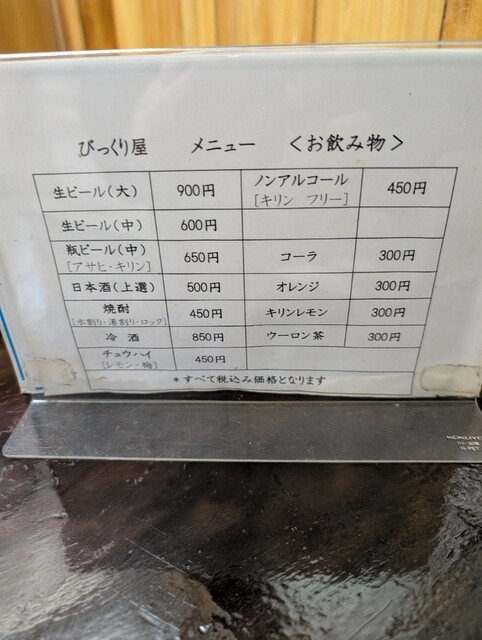 びっくり屋 メニュー <お飲み物>
生ビール(大) 900円 ノンアルコール 450円
[キリン フリー]
生ビール(中) 600円
瓶ビール(中) 650円 コーラ 300円
[アサヒ・キリン]
日本酒(上選) 500円 オレンジ 300円
焼酎 450円 キリンレモン 300円
[水割り・湯割り・ロック]
冷酒 850円 ウーロン茶 300円
チュウハイ 450円
[レモン・梅]
*すべて税込み価格となります
KOKUYO